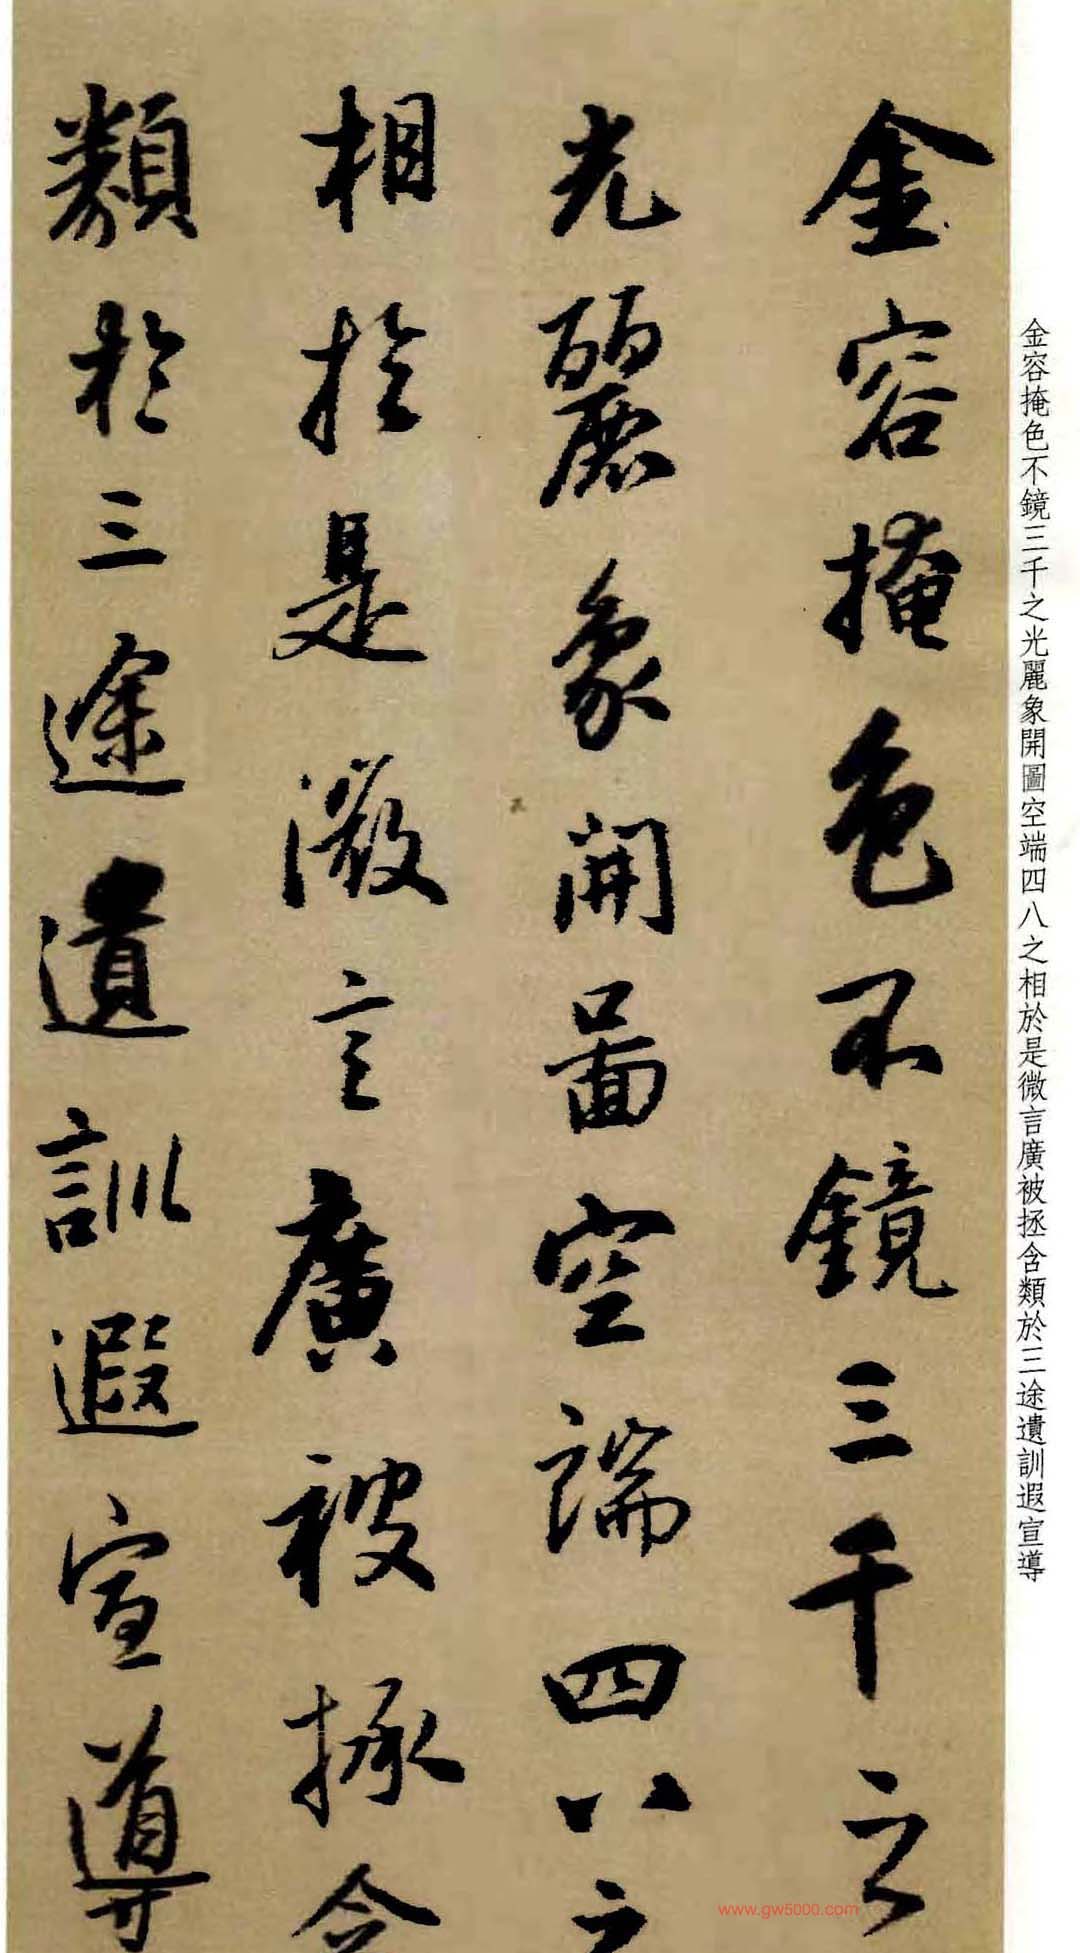 金容掩色不鏡三千之光麗象開圖空端四八之相於是微言廣被拯含類於三途遺訓遐宣導
金容掩色不鏡三千之
光麗象開圖空端四八之
相於是微言廣被拯含
類於三途遺訓遐宣導
www.gw5000.com